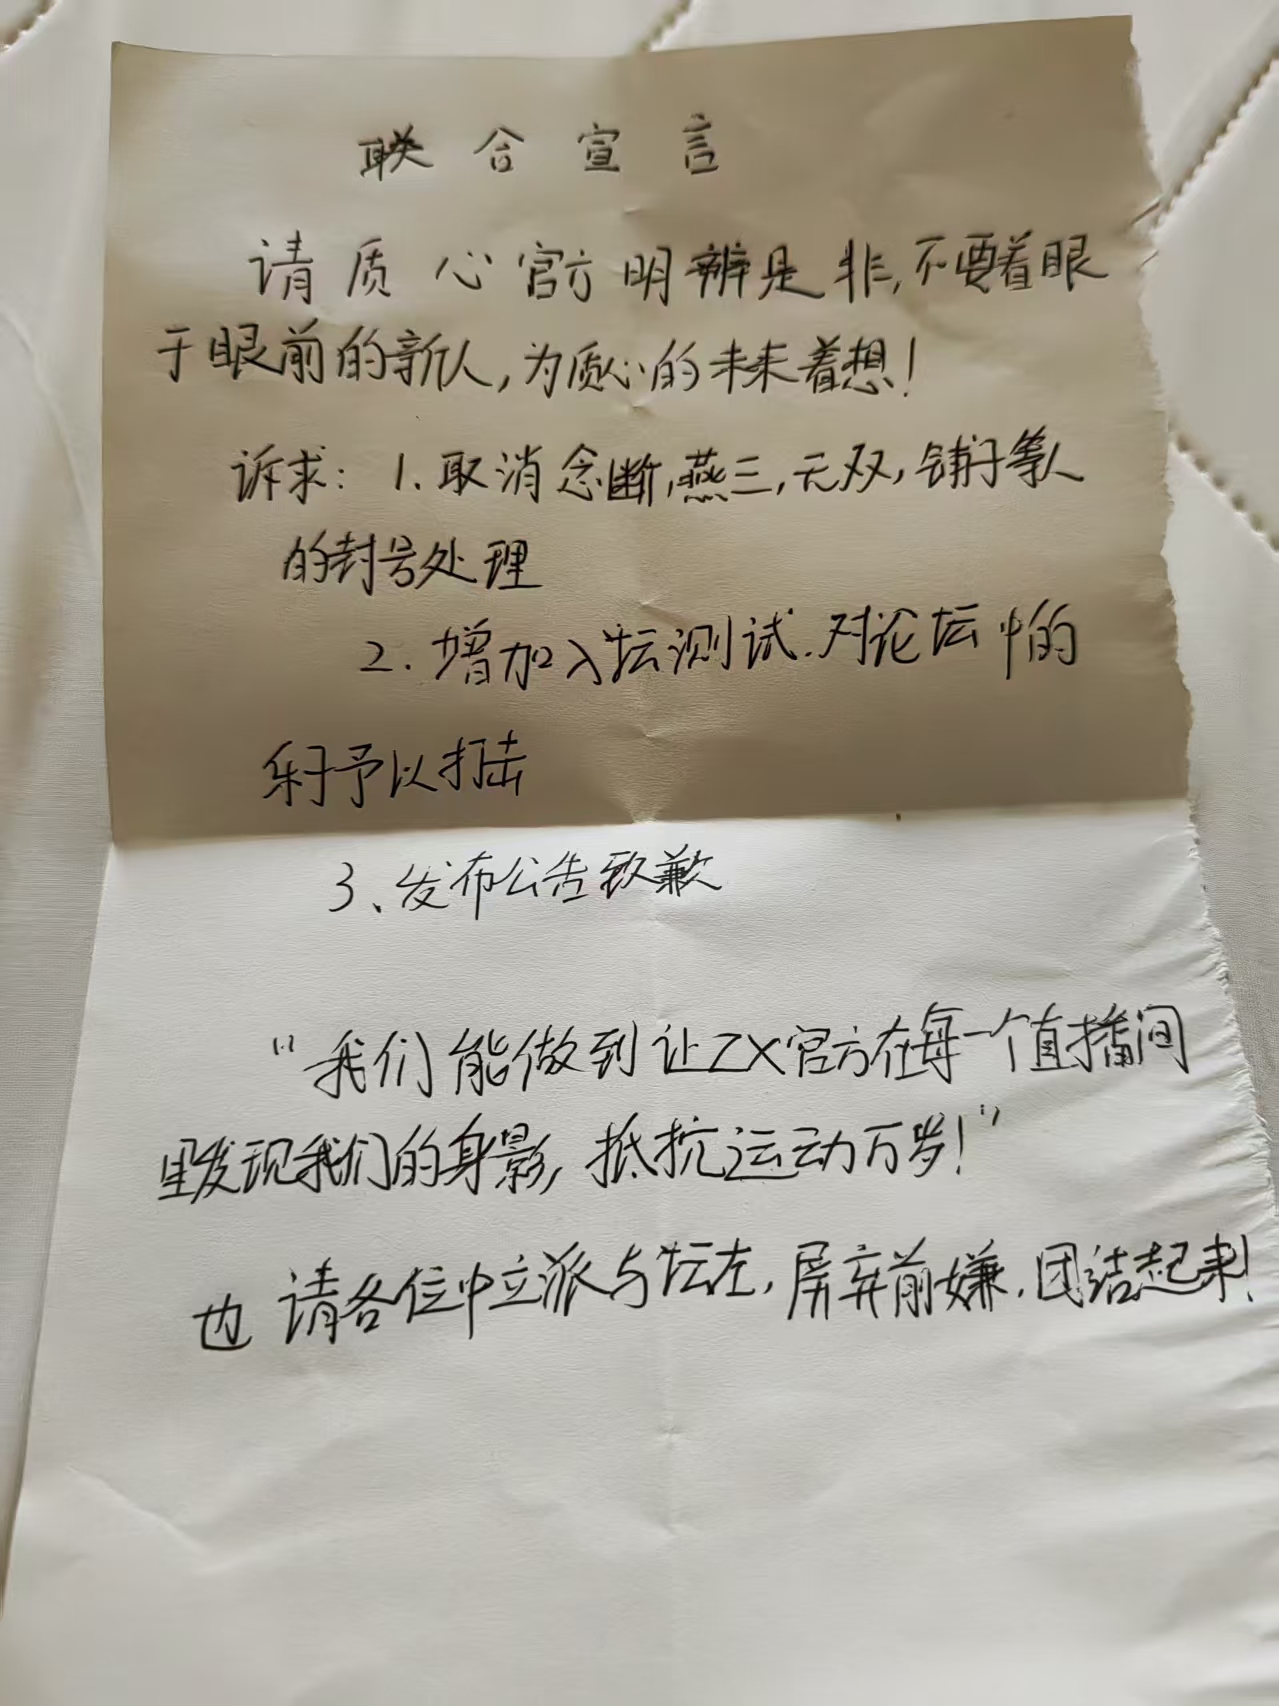 联合宣言
请质心官方明辨是非,不要着眼
于眼前的新人,为质心的未来着想!
诉求:1.取消念断,燕三,无双,铺子等人
的封号处理
2.增加入坛测试.对论坛中的
予以打击
3、发布公告致歉
“我们能做到让ZX官方在每一个直播间
里发现我们的身影,抵抗运动万岁!”
也请各位中立派与坛左,屏弃前嫌.团结起来!